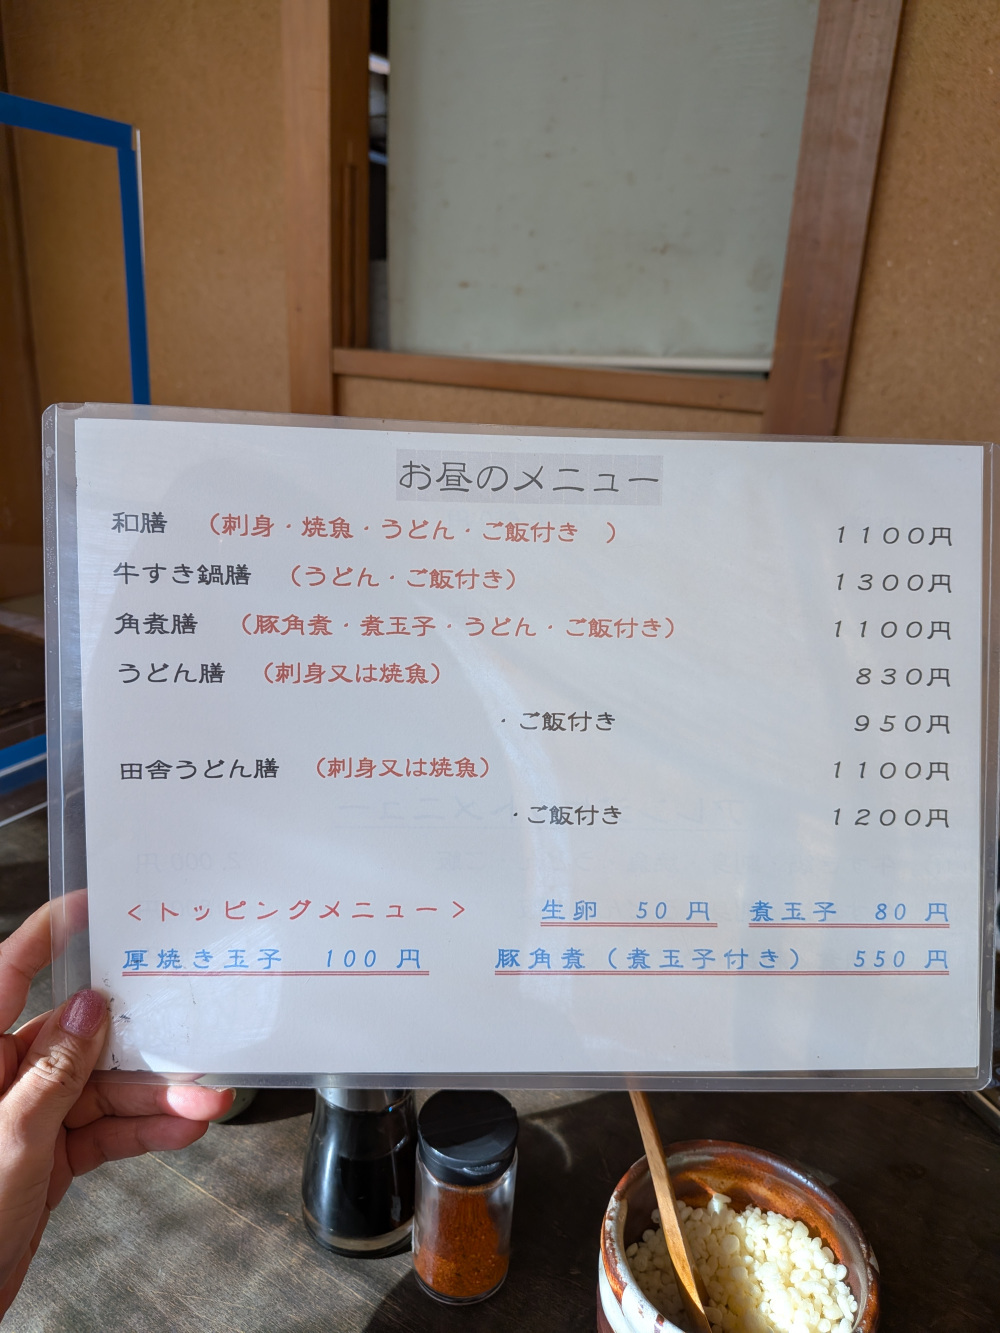 お昼のメニュー
和膳 （刺身・焼魚・うどん・ご飯付き ） １１００円
牛すき鍋膳 （うどん・ご飯付き） １３００円
角煮膳 （豚角煮・煮玉子・うどん・ご飯付き） １１００円
うどん膳 （刺身又は焼魚） ８３０円
・ご飯付き ９５０円
田舎うどん膳 （刺身又は焼魚） １１００円
・ご飯付き １２００円
＜トッピングメニュー＞ 生卵 50 円 煮玉子 80 円
厚焼き玉子 100 円 豚角煮（煮玉子付き） 550 円